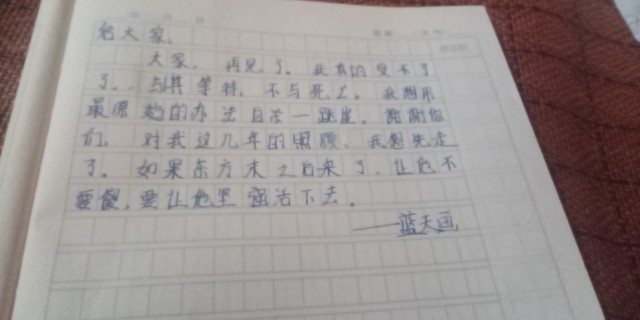 给大家、
大家，再见了。我真的受不了
了。与其等待，不与死亡。我想用
最原始的办法自杀一跳崖。谢谢你
们，对我这几年的照顾，我想先走
了。如果东方末之后来了，让他不
要傻，要让他坚强活下去。
——蓝天画